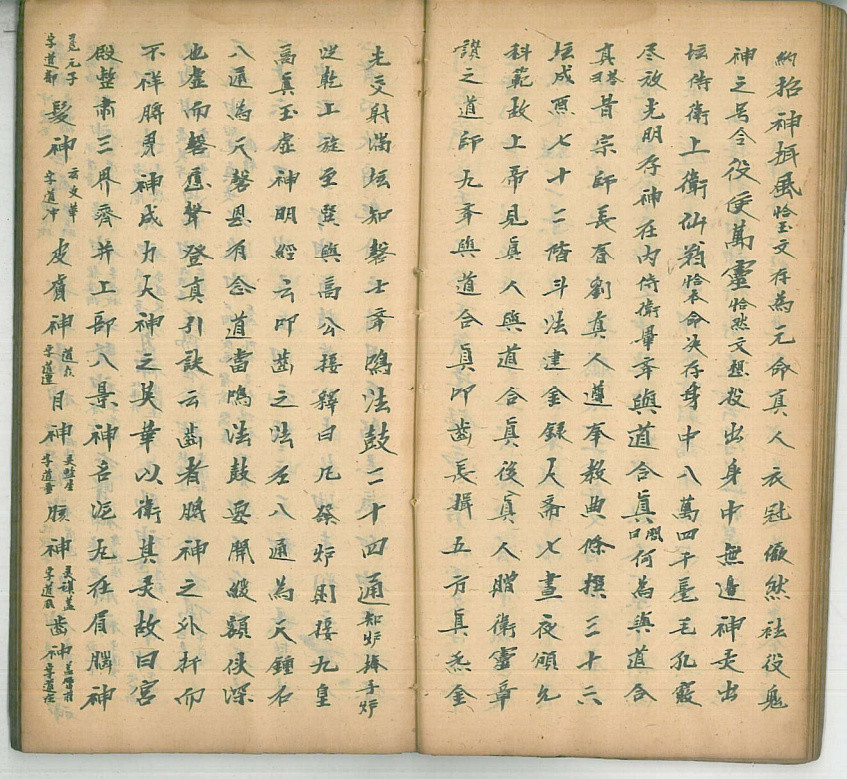 約招神掋風恰玉文存為元命真人衣冠儼然社役鬼
神之呂令役使萬靈恰然文想投出身中無邊神灵出
坛侍衛上衛仙翁恰衣命決存身中八萬四千毫毛孔竅
尽放光明存神在内侍衛畢幸與道合真問曰何為與道合
真答曰昔宗師長春劉真人遵奉教典修撰三十六
坛成愿七十二階斗法建金録天斋七晝夜頌允
科範敖上帝見真人與道合真後真人贈衛靈章
讚之道師九幸與道合真叩齒長揖五方真炁金
光交射满坛知磬士幸鳴法鼓二十四通知炉捧手炉
迎乾上旋至巽與高公接釋曰凡祭炉則接九皇
高真玉虛神明經云叩齒之法左八通為天鍾右
八通為天磬思有念道當鳴法鼓要閉緩額俠深
也虛而磬應聲登真引訣云齒者腦神之外折而
不祥腦覓神成力天神之英華以衛其灵故曰宮
殿整肃三界齊并上部八景神名泥丸在眉腦神
覓元子字道都髮神玄文華字道冲皮膚神道在字道連目神灵監生字道童 神灵謨盖字道周齒神